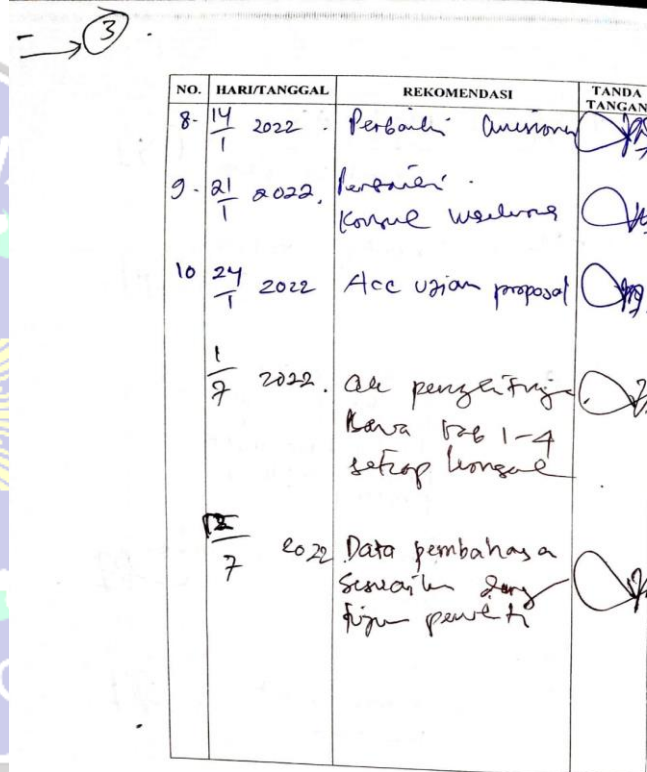 3
NO. HARI/TANGGAL REKOMENDASI TANDA TANGAN
8. 14/1 2022. Perbaiki
9. 21/1 2022. Perbaiki.
Konsul
10 24/1 2022 Acc ujian proposal
1/7 2022.
Bawa bab 1-4
setiap konsul
12/7 2022 Data pembahasa
Sesuaikan deng